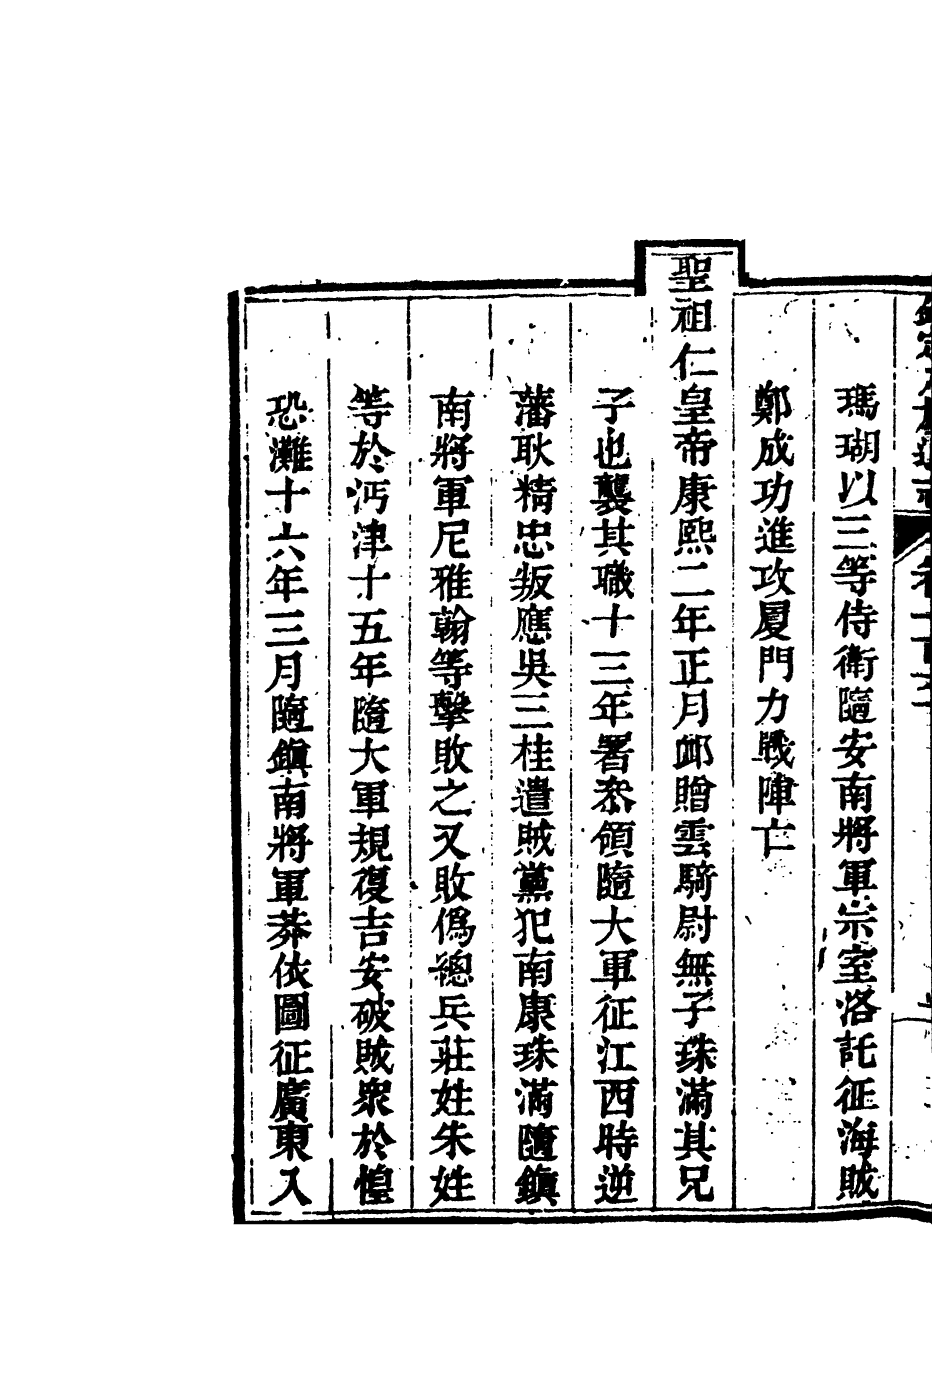 瑪瑚以三等侍衛隨安南將軍宗室洛託征海賊
鄭成功進攻厦門力戰陣亡
聖祖仁皇帝康熙二年正月䘏贈雲騎尉無子珠滿其兄
子也襲其職十三年署叅領隨大軍征江西時逆
藩耿精忠叛應吳三桂遣賊黨犯南康珠滿隨鎮
南將軍尼雅翰等擊敗之又敗僞總兵莊姓朱姓
等於沔津十五年隨大軍規復吉安破賊衆於惶
恐灘十六年三月隨鎮南將軍莽依圖征廣東入